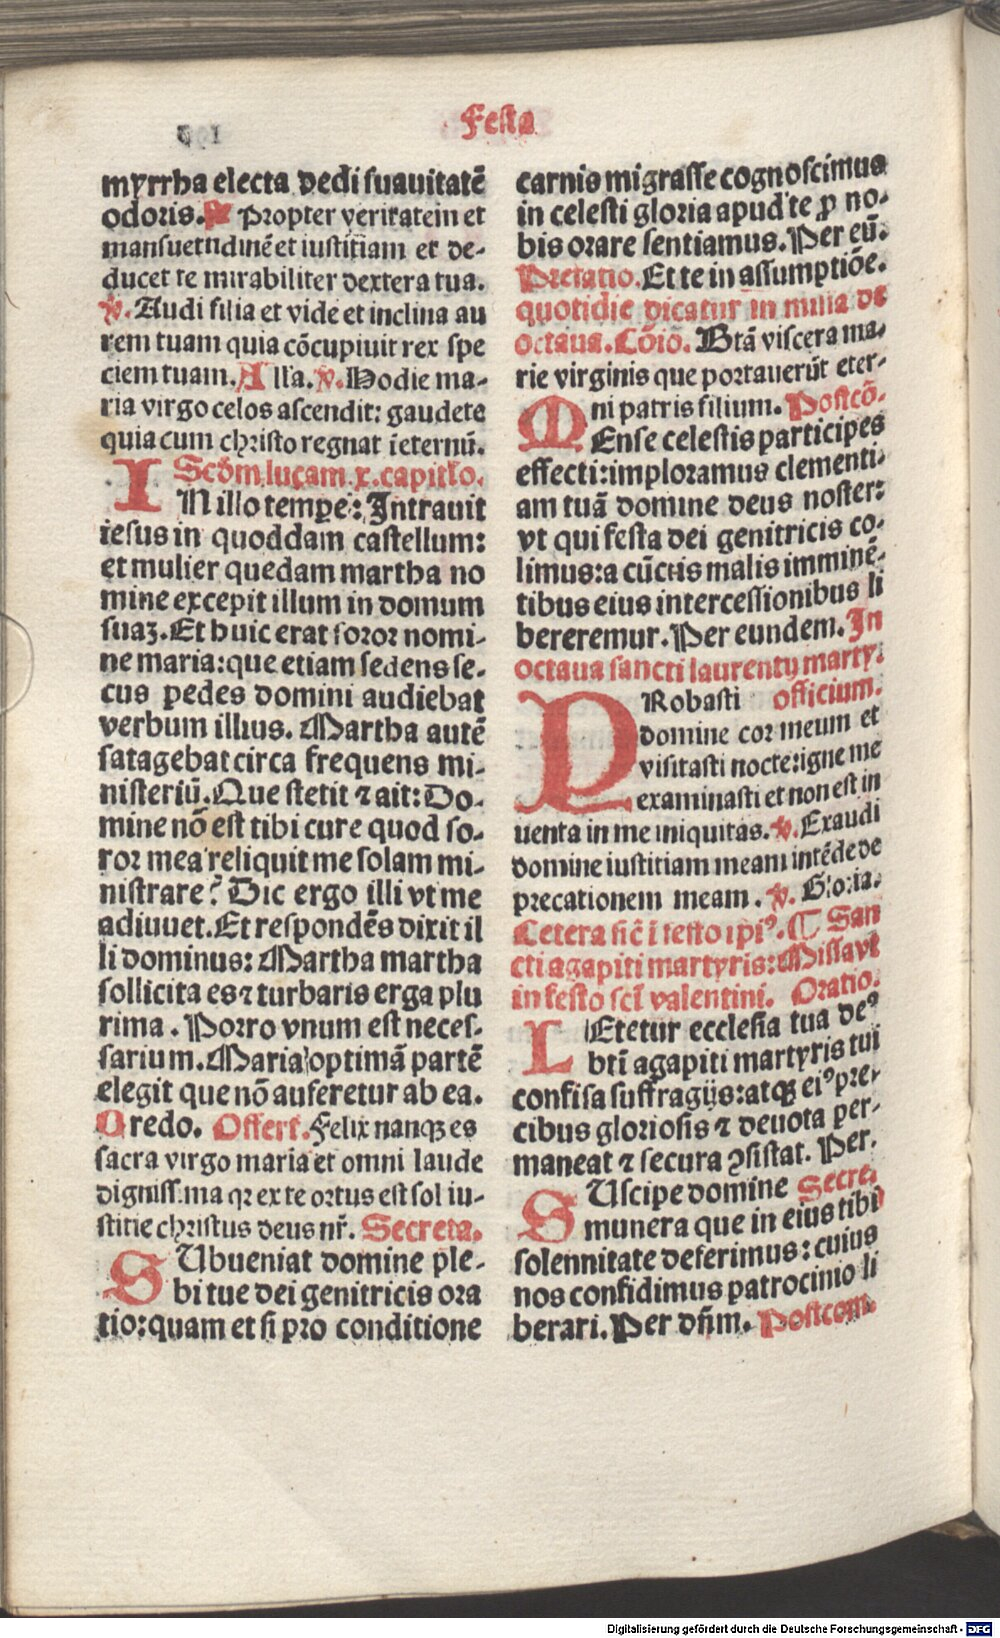 Festa
myrrha electa dedi suauitatē
odoris. Propter veritatem et
mansuetudinē et iustitiam et de-
ducet te mirabiliter dextera tua.
℣. Audi filia et vide et inclina au
rem tuam quia cōcupiuit rex spe
ciem tuam. Alľa. ℣. Hodie ma-
ria virgo celos ascendit: gaudete
quia cum christo regnat ieternū.
Scďm lucam x. capitło.
IN illo tempe: Intrauit
iesus in quoddam castellum:
et mulier quedam martha no
mine excepit illum in domum
suaʒ. Et huic erat soror nomi-
ne maria: que etiam sedens se-
cus pedes domini audiebat
verbum illius. Martha autē
satagebat circa frequens mi-
nisteriū. Que stetit ⁊ ait: Do-
mine nō est tibi cure quod so-
ror mea reliquit me solam mi-
nistrare? Dic ergo illi vt me
adiuuet. Et respondēs dixit il
li dominus: Martha martha
sollicita es ⁊ turbaris erga plu
rima. Porro vnum est neces-
sarium. Maria optimā partē
elegit que nō auferetur ab ea.
Credo. Offert. Felix nanqꝫ es
sacra virgo maria et omni laude
dignissima qꝛ ex te ortus est sol iu-
stitie christus deus nr̄. Secreta.
SUbueniat domine ple-
bi tue dei genitricis ora
tio: quam et si pro conditione
carnis migrasse cognoscimus
in celesti gloria apud te ꝓ no-
bis orare sentiamus. Per eū.
Prefatio. Et te in assumptiōe.
quotidie dicatur in missa de
octaua. Cōio. Btā viscera ma-
rie virginis que portauerūt eter-
ni patris filium. Postcō.
MEnse celestis participes
effecti: imploramus clementi-
am tuā domine deus noster:
vt qui festa dei genitricis co-
limus: a cūctis malis imminē-
tibus eius intercessionibus li
bereremur. Per eundem. In
octaua sancti laurentij marty.
PRobasti officium.
domine cor meum et
visitasti nocte: igne me
examinasti et non est in
uenta in me iniquitas. ℣. Exaudi
domine iustitiam meam intēde de
precationem meam. ℣. Gloria.
Cetera sic̄ ī festo ipiꝰ. ¶ San
cti agapiti martyris: Missa vt
in festo scī valentini. Oratio.
LEtetur ecclesia tua deꝰ
btī agapiti martyris tui
confisa suffragijs: atqꝫ eiꝰ pre-
cibus gloriosis ⁊ deuota per-
maneat ⁊ secura ꝯsistat. Per.
SUscipe domine Secre.
munera que in eius tibi
solennitate deferimus: cuius
nos confidimus patrocinio li
berari. Per dn̄m. Postcom.
Digitalisierung gefördert durch die Deutsche Forschungsgemeinschaft - DFG